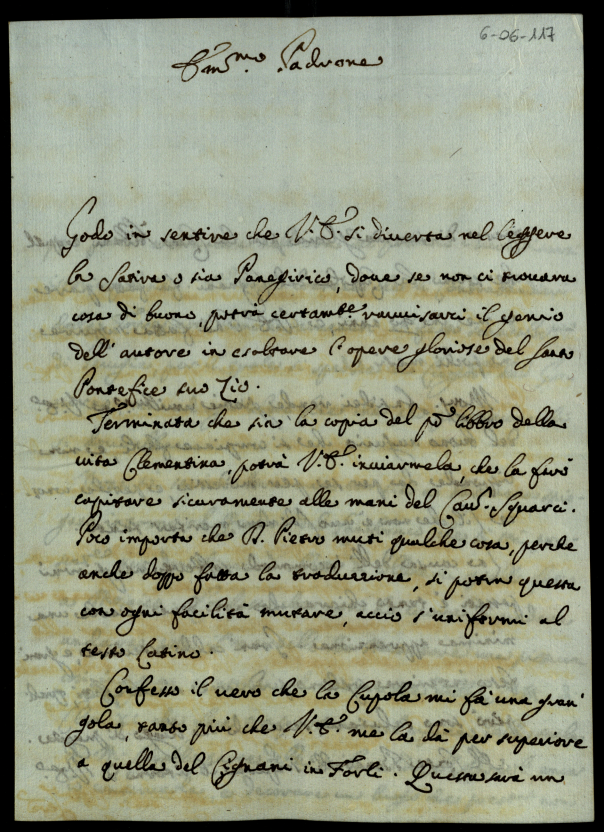 6-06-117
Em.mo Padrone
Godo in sentire che V. E. si diverta nel leggere
la Satira o sia Panegirico, dove se non ci trovarà
cosa di buono, potrà certam.te ravvisarci il genio
dell' autore in esaltare l'opere gloriose del Santo
Pontefice suo Zio.
Terminata che sia la copia del p.o libbro della
vita Clementina, potrà V. E. inviarmela, che la farò
capitare sicuramente alle mani del Cav.r Squarci.
Poco importa che D. Pietro muti qualche cosa, perche
anche doppo fatta la traduzione, si potrà questa
con ogni facilità mutare, acciò s'uniformi al
testo Latino.
Confesso il vero che la Cupola mi fà una gran
gola, tanto più che V. E. me la dà per superiore
a quella del Cignani in Forlì. Questa sarà un